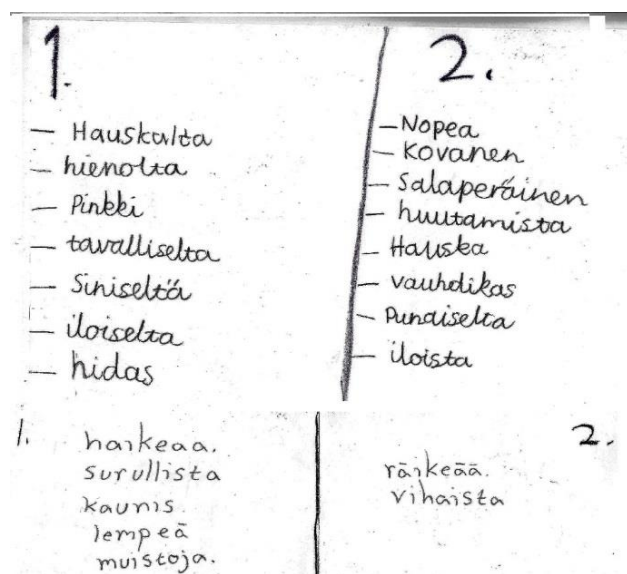 1.
— Hauskalta
— hienolta
— Pinkki
— tavalliselta
— Siniseltä
— iloiselta
— hidas
2.
— Nopea
— Kovanen
— Salaperäinen
— huutamista
— Hauska
— vauhdikas
— Punaiselta
— iloista
1.
haikeaa.
surullista
kaunis.
lempeä
muistoja.
2.
räikeää.
vihaista